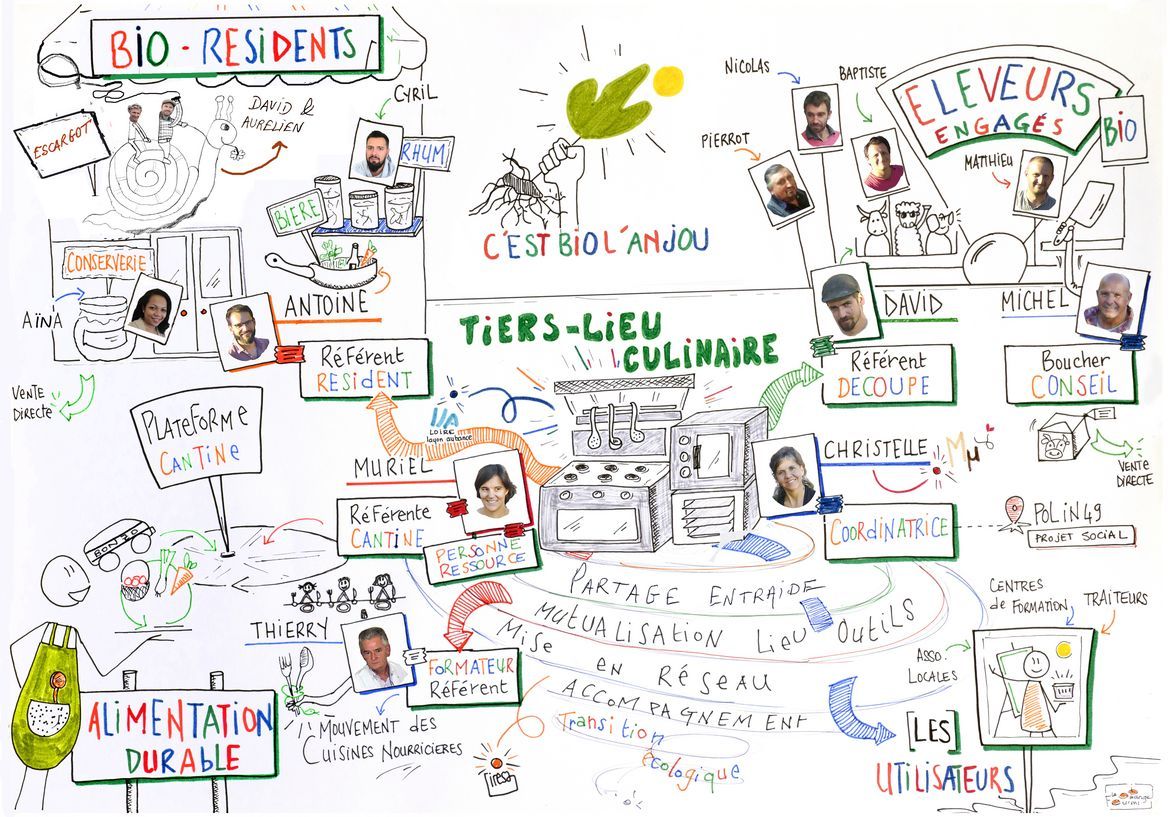 BiO - RESIDENTS
ESCARGOT
DAVID &
AURELIEN
CYRIL
RHUM
BIERE
CONSERVERIE
AÏNA
ANTOINE
RéFérent
RESIDENT
VENTE
DIRECTE
C'EST BIO L'ANJOU
NICOLAS
BAPTISTE
PIERROT
MATTHIEU
ELEVEURS
ENGAGÉS
BiO
DAVID
RéFérent
DECOUPE
MICHEL
Boucher
CONSEIL
VENTE
DIRECTE
TiERS-LiEU
CULINAIRE
LOIRE
layon aubance
PLATEFORME
CANTINE
BONJOUR
MURIEL
RéFérente
CANTINE
PERSONNE
RESSOURCE
CHRISTELLE
COORDINATRICE
POLiN49
PROJET SOCIAL
PARTAGE ENTRAIDE
MUTUALISATION LiEU OUTILS
MiSE en RéSEAU
ACCOMPAGNEMENT
Transition
écologique
THIERRY
FORMATEUR
RéFérent
MOUVEMENT des
CUISINES NOURRICIERES
ALiMENTATION
DURABLE
CENTRES
de FORMATION
TRAITEURS
ASSO.
LOCALES
[LES]
UTILISATEURS